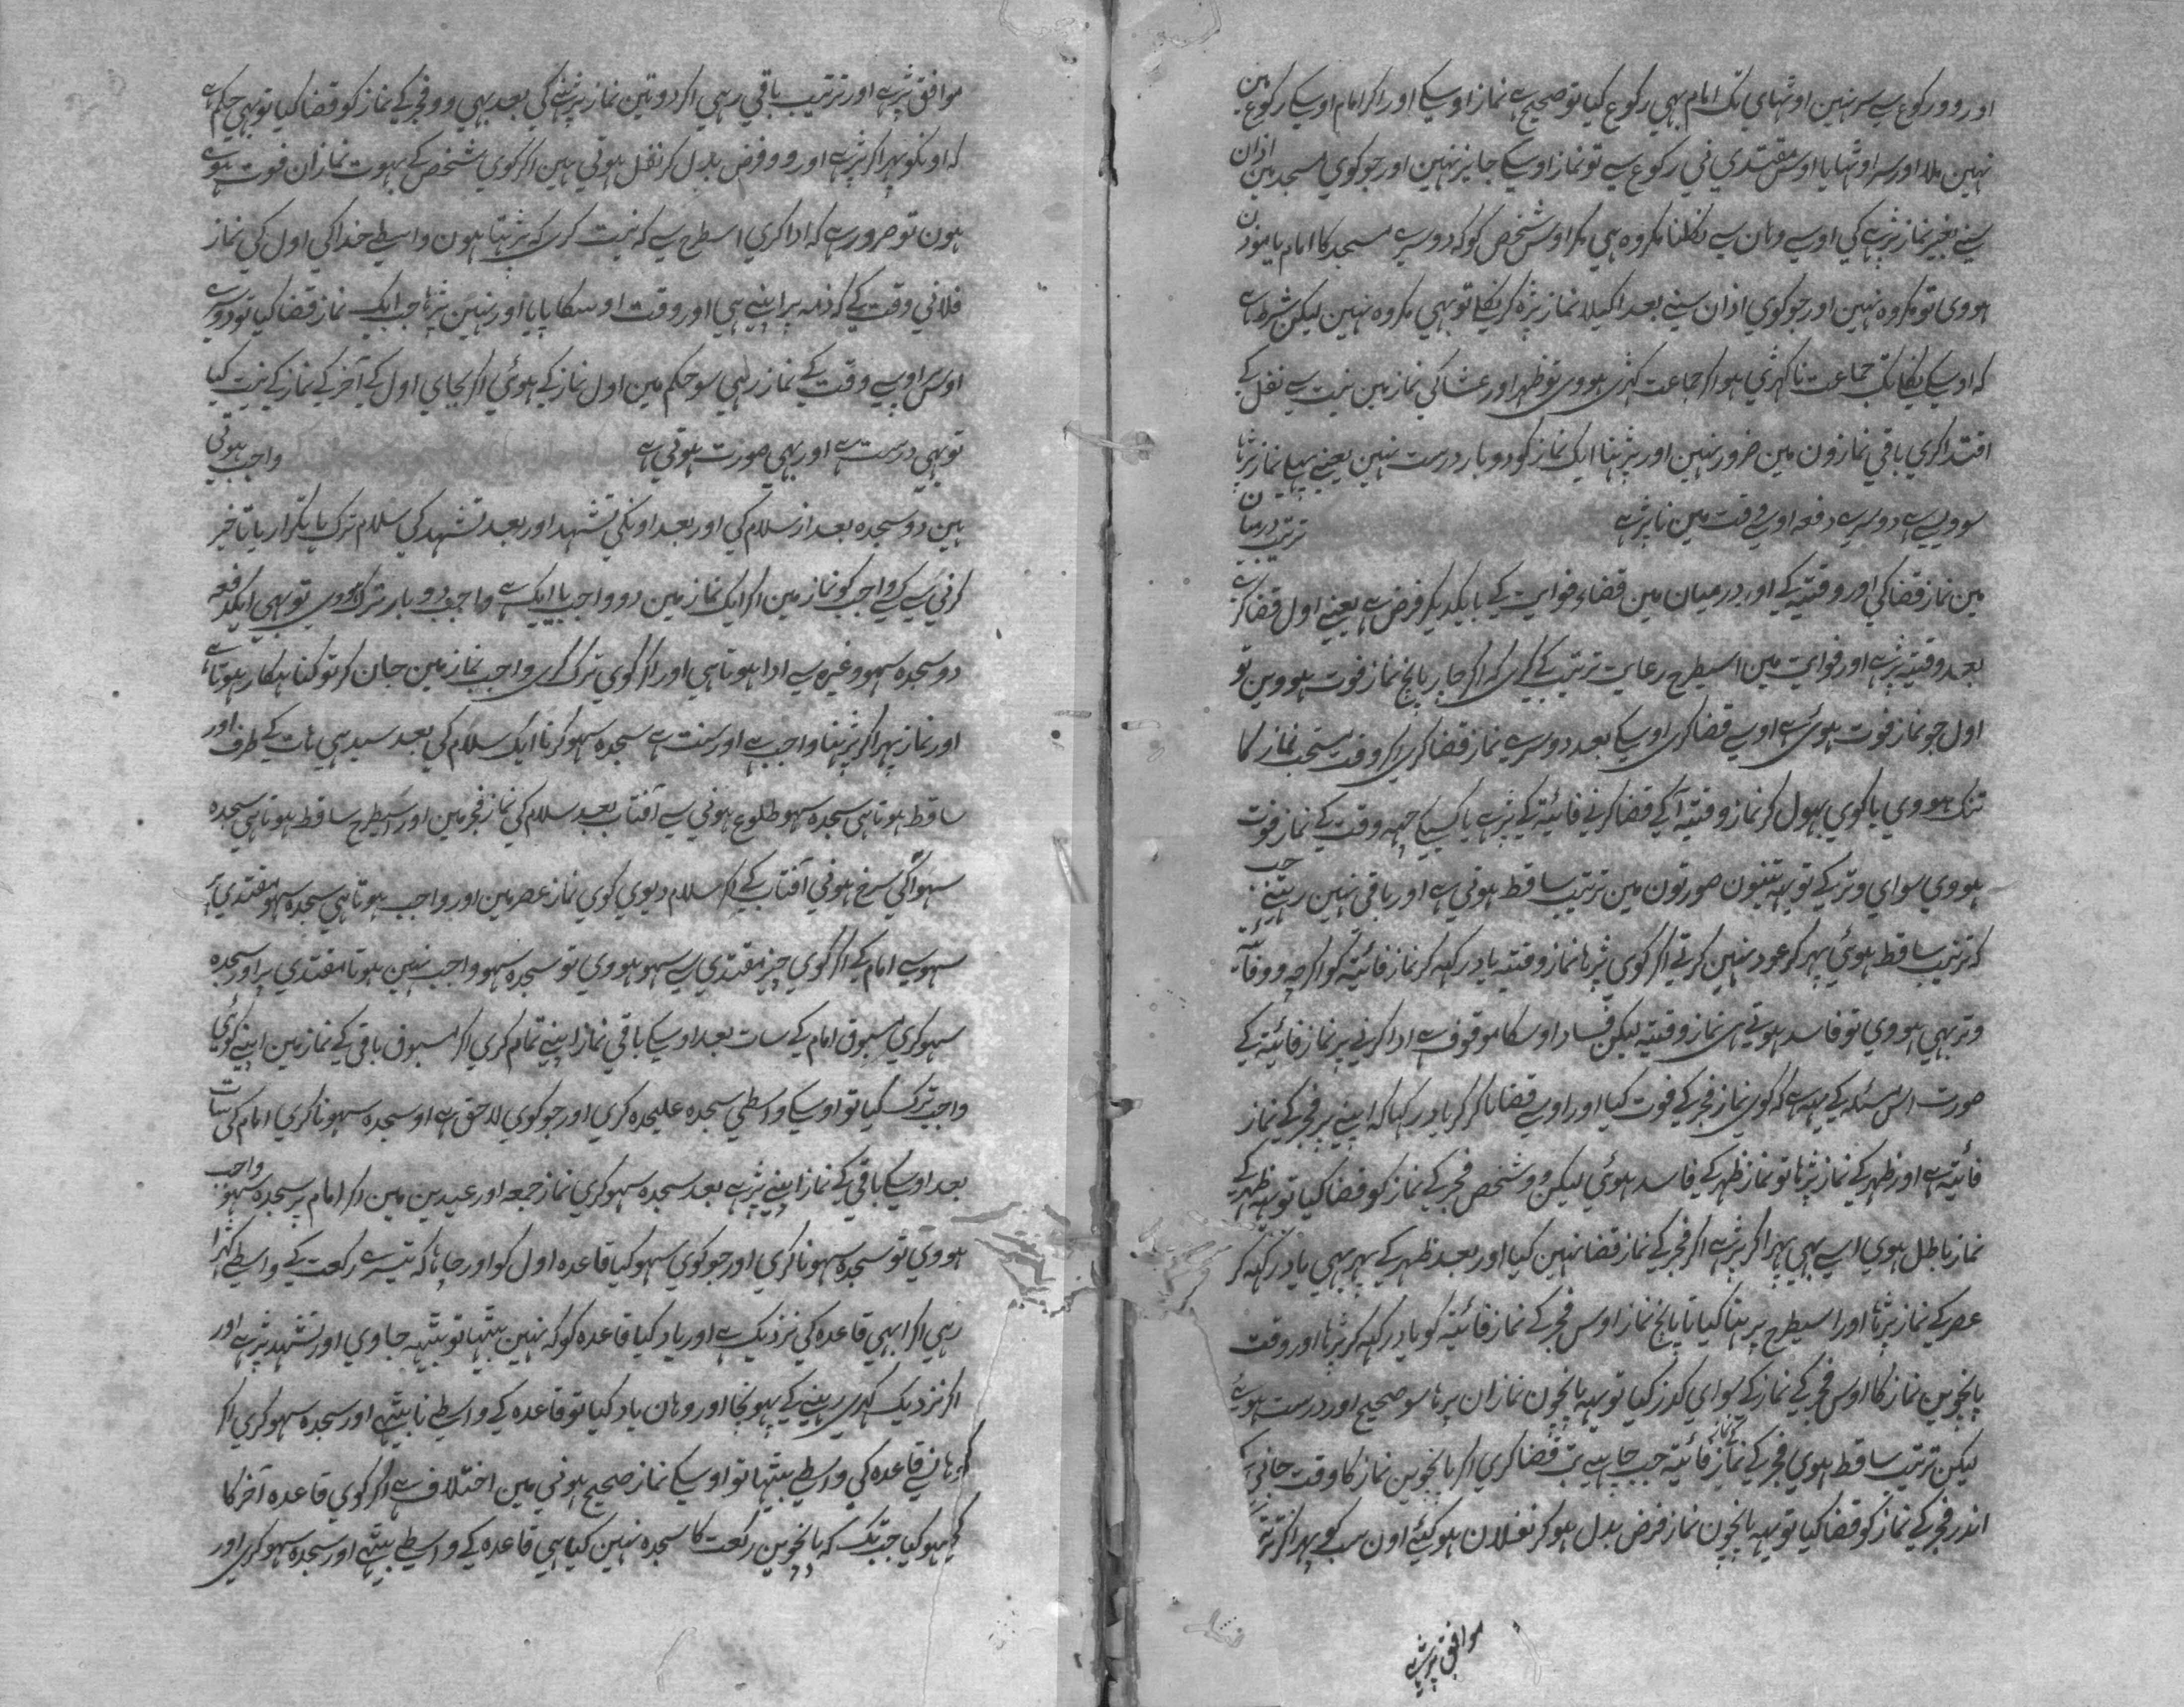 اور وو رکوع سے سر نہین اوٹہای تک امام بہی رکوع کیا تو صحیح ہے نماز اوسکے اور اکر امام اوسکے رکوع مین
نہین ملا اور سر اوٹہایا اوس مقتدی نی رکوع سے تو نماز اوسکے جایز نہین اور جو کوی مسجد مین اذان
سنے بغیر نماز پڑہے کی اوسے وہان سے نکلنا مکروہ ہی مکر اوس شخص کو کہ دوسرے مسجد کا امام یا موذن
ہووی تو مکروہ نہین اور جو کوی اذان سنے بعد اکیلا نماز پڑہ کر نکلے تو بہی مکروہ نہین لیکن شرط ہے
کہ اوسکے نکلے تک جماعت ناکہڑی ہو اکر جماعت کہڑی ہووی تو ظہر اور عشا کی نماز مین نیت سے نفل کے
اقتدا کری باقی نمازون مین ضرور نہین اور پڑہنا ایک نماز کو دوبار درست نہین یعنے پہلے نماز پڑہا
سو ویسے ہے دوسرے دفعہ اوسے وقت مین ناپڑہے ترتیب درمیان
مین نماز قضا کی اور وقتیہ کے اور درمیان مین قضاء فوایت کے بایکدیکر فرض ہے یعنے اول قضا کرے
بعد وقتیہ پڑہے اور فوایت مین اسیطرح رعایت ترتیب کے کری کر اکر چار پانچ نماز فوت ہووین تو
اول جو نماز فوت ہوئی ہے اوسے قضا کری اوسکے بعد دوسرے نماز قضا کری اکر وقت مستحب نماز کا
تنک ہووی یا کوی بہول کر نماز وقتیہ آکے قضا کرنے فائتہ کے پڑہے یا کسیکے چہہ وقت کے نماز فوت
ہووی سوای وتر کے تو یہہ تینون صورتون مین ترتیب ساقط ہوتی ہے اور باقی نہین رہتے جب
کہ ترتیب ساقط ہوئی پہر کر عود نہین کرتے اکر کوی پڑہا نماز وقتیہ یاد رکہہ کر نماز فائتہ کو اکرچہ وو فائتہ
وتر بہی ہووی تو فاسد ہوتے ہی نماز وقتیہ لیکن فساد اوسکا موقوف ہے ادا کرنے پر نماز فائتہ کے
صورت اس مسئلہ کے یہہ ہے کہ کوی نماز فجر کے فوت کیا اور اوسے قضا ناکر کر یاد رکہا کہ اپنے پر فجر کے نماز
فائتہ ہے اور ظہر کے نماز پڑہا تو نماز ظہر کے فاسد ہوئی لیکن وو شخص فجر کے نماز کو قضا کیا تو یہہ ظہر کے
نماز باطل ہوی اسے بہی پہرا کر پڑہے اکر فجر کے نماز قضا نہین کیا اور بعد ظہر کے پہر بہی یاد رکہہ کر
عصر کے نماز پڑہا اور اسیطرح پڑہتا کیا تا پانچ نماز اوس فجر کے نماز فائتہ کو یاد رکہہ کر پڑہا اور وقت
پانچوین نماز کا اوس فجر کے نماز کے سوای کذر کیا تو یہہ پانچون نمازان پڑہا سو صحیح اور درست ہوئے
لیکن ترتیب ساقط ہوی فجر کے نماز فائتہ جب چاہے تب قضا کری اکر پانچوین نماز کا وقت جانی کے
اندر فجر کے نماز کو قضا کیا تو یہہ پانچون نماز فرض بدل ہو کر نفلان ہوکیئے اون سب کو پہرا کر ترتیب
موافق پڑہے
موافق پڑہے اور ترتیب باقی رہی اکر دو تین نماز پڑہنے کی بعد بہی وو فجر کے نماز کو قضا کیا تو بہی حکم ہے
کہ اونکو پہرا کر پڑہے اور وو فرض بدل کر نفل ہوتی ہین اکر کوی شخص کے بہوت نمازان فوت ہوے
ہون تو ضرور ہے کہ ادا کری اسطرح سے کہ نیت کری کہ پڑہتا ہون واسطے خدا کی اول کی نماز
فلانی وقت کے کہ ذمہ پر اپنے ہی اور وقت اوسکا پایا اور نہین پڑہا جب ایک نماز قضا کیا تو دوسرے
اوس پر اوسے وقت کے نماز رہی سو حکم مین اول نماز کے ہوئی اکر بجای اول کے آخر کے نماز کے نیت کیا
تو بہی درست ہے اور بہی صورت ہوتی ہے واجب ہوتی
ہین دو سجدہ بعد از سلام کی اور بعد اونکی تشہد اور بعد تشہد کی سلام ترک یا تکرار یا تاخیر
کرنی سے کسے واجب کو نماز مین اکر ایک نماز مین دو واجب یا ایک ہے واجب دو بار ترک ہووی تو بہی ایکدفعہ
دو سجدہ سہو وغیرہ سے ادا ہوتا ہی اور اکر کوی ترک کری واجب نماز مین جان کر تو کناہکار ہوتا ہے
اور نماز پہرا کر پڑہنا واجب ہے اور سنت ہے سجدہ سہو کرنا ایک سلام کی بعد سیدہی ہات کے طرف اور
ساقط ہوتا ہی سجدہ سہو طلوع ہونی سے آفتاب بعد سلام کی نماز فجر مین اور اسیطرح ساقط ہوتا ہی سجدہ
سہو اکی سرخ ہونی آفتاب کے اکر سلام دیوی کوی نماز عصر مین اور واجب ہوتا ہی سجدہ سہو مقتدی پر
سہو سے امام کے اکر کوی چیز مقتدی سے سہو ہووی تو سجدہ سہو واجب نہین ہوتا مقتدی پر اور سجدہ
سہو کری مسبوق امام کے سات بعد اوسکے باقی نماز اپنے تمام کری اکر مسبوق باقی کے نماز مین اپنے کوئی
واجب ترک کیا تو اوسکے واسطی سجدہ علیحدہ کری اور جو کوی لاحق ہے او سجدہ سہو ناکری امام کی سات
بعد اوسکے باقی کے نماز اپنے پڑہے بعد سجدہ سہو کری نماز جمعہ اور عیدین مین اکر امام پر سجدہ سہو واجب
ہووی تو سجدہ سہو ناکری اور جو کوی سہو کیا قاعدہ اول کو اور چاہا کہ تیسرے رکعت کے واسطے کہڑا
رہی اکر ابہی قاعدہ کی نزدیک ہے اور یاد کیا قاعدہ کو کہ نہین بیٹہا تو بیٹہہ جاوی اور تشہد پڑہے اور
اکر نزدیک کہڑی رہنے کے پہونچا اور وہان یاد کیا تو قاعدہ کے واسطے نا بیٹہے اور سجدہ سہو کری اکر
وہان سے قاعدہ کی واسطے بیٹہا تو اوسکے نماز صحیح ہونی مین اختلاف ہے اکر کوی قاعدہ آخر کا
سہو کیا جب تک کہ پانچوین رکعت کا سجدہ نہین کیا ہی قاعدہ کے واسطے بیٹہے اور سجدہ سہو کری اور